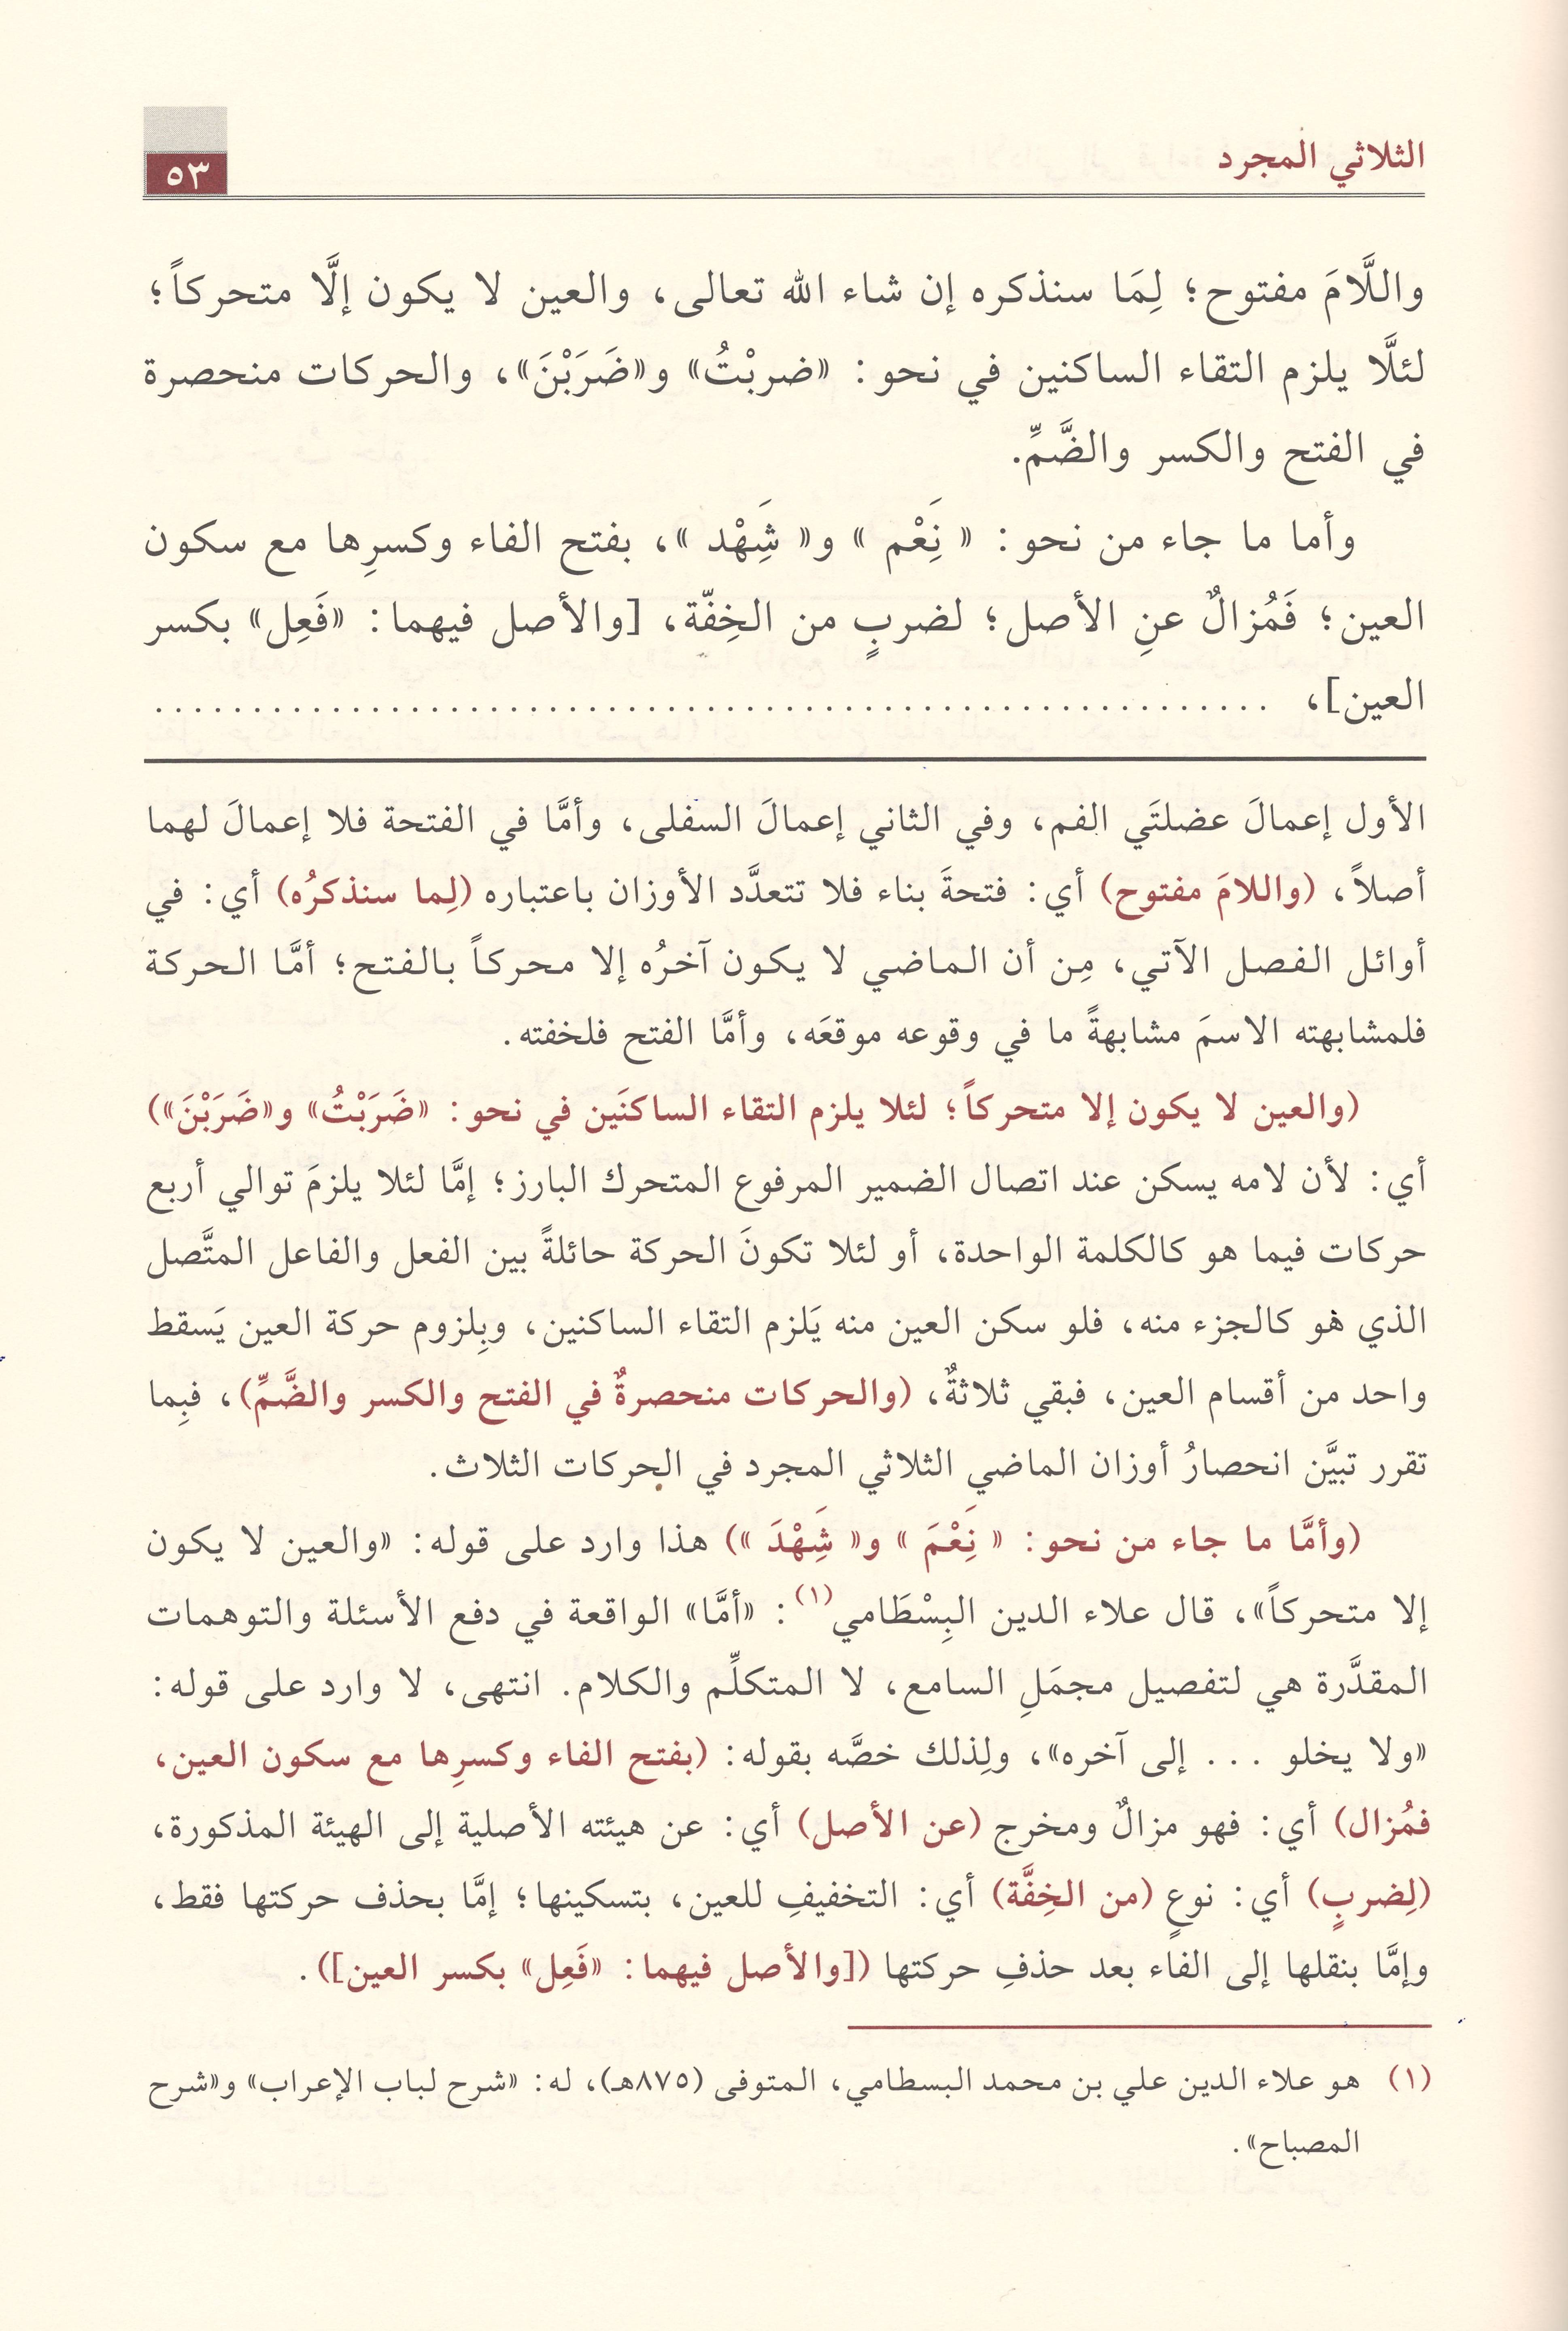 الثلاثي المجرد
٥٣
واللَّامَ مفتوح؛ لِمَا سنذكره إن شاء الله تعالى، والعين لا يكون إلَّا متحركاً؛
لئلَّا يلزم التقاء الساكنين في نحو: «ضربْتُ» و«ضَرَبْنَ»، والحركات منحصرة
في الفتح والكسر والضَّمِّ.
وأما ما جاء من نحو: « نَِعْم » و« شَِهْد »، بفتح الفاء وكسرِها مع سكون
العين؛ فَمُزالٌ عنِ الأصل؛ لضربٍ من الخِفّة، [والأصل فيهما: «فَعِل» بكسر
العين]، . . . . . . . . . . . . . . . . . . . . . . . . . . . . . . . . . . . . . . . . . . . . . . . . . . . . . . . . .
الأول إعمالَ عضلتَي الفم، وفي الثاني إعمالَ السفلى، وأمَّا في الفتحة فلا إعمالَ لهما
أصلاً، (واللامَ مفتوح) أي: فتحةَ بناء فلا تتعدَّد الأوزان باعتباره (لِما سنذكرُه) أي: في
أوائل الفصل الآتي، مِن أن الماضي لا يكون آخرُه إلا محركاً بالفتح؛ أمَّا الحركة
فلمشابهته الاسمَ مشابهةً ما في وقوعه موقعَه، وأمَّا الفتح فلخفته.
(والعين لا يكون إلا متحركاً؛ لئلا يلزم التقاء الساكنَين في نحو: «ضَرَبْتُ» و«ضَرَبْنَ»)
أي: لأن لامه يسكن عند اتصال الضمير المرفوع المتحرك البارز؛ إمَّا لئلا يلزمَ توالي أربع
حركات فيما هو كالكلمة الواحدة، أو لئلا تكونَ الحركة حائلةً بين الفعل والفاعل المتَّصل
الذي هو كالجزء منه، فلو سكن العين منه يَلزم التقاء الساكنين، وبِلزوم حركة العين يَسقط
واحد من أقسام العين، فبقي ثلاثةٌ، (والحركات منحصرةٌ في الفتح والكسر والضَّمِّ)، فبِما
تقرر تبيَّن انحصارُ أوزان الماضي الثلاثي المجرد في الحركات الثلاث.
(وأمَّا ما جاء من نحو: « نَِعْمَ » و« شَِهْدَ ») هذا وارد على قوله: «والعين لا يكون
إلا متحركاً»، قال علاء الدين البِسْطَامي(١): «أمَّا» الواقعة في دفع الأسئلة والتوهمات
المقدَّرة هي لتفصيل مجمَلِ السامع، لا المتكلِّم والكلام. انتهى، لا وارد على قوله:
«ولا يخلو . . . إلى آخره»، ولِذلك خصَّه بقوله: (بفتح الفاء وكسرِها مع سكون العين،
فمُزال) أي: فهو مزالٌ ومخرج (عن الأصل) أي: عن هيئته الأصلية إلى الهيئة المذكورة،
(لِضربٍ) أي: نوعٍ (من الخِفَّة) أي: التخفيفِ للعين، بتسكينها؛ إمَّا بحذف حركتها فقط،
وإمَّا بنقلها إلى الفاء بعد حذفِ حركتها ([والأصل فيهما: «فَعِل» بكسر العين]).
(١) هو علاء الدين علي بن محمد البسطامي، المتوفى (٨٧٥هـ)، له: «شرح لباب الإعراب» و«شرح
المصباح».